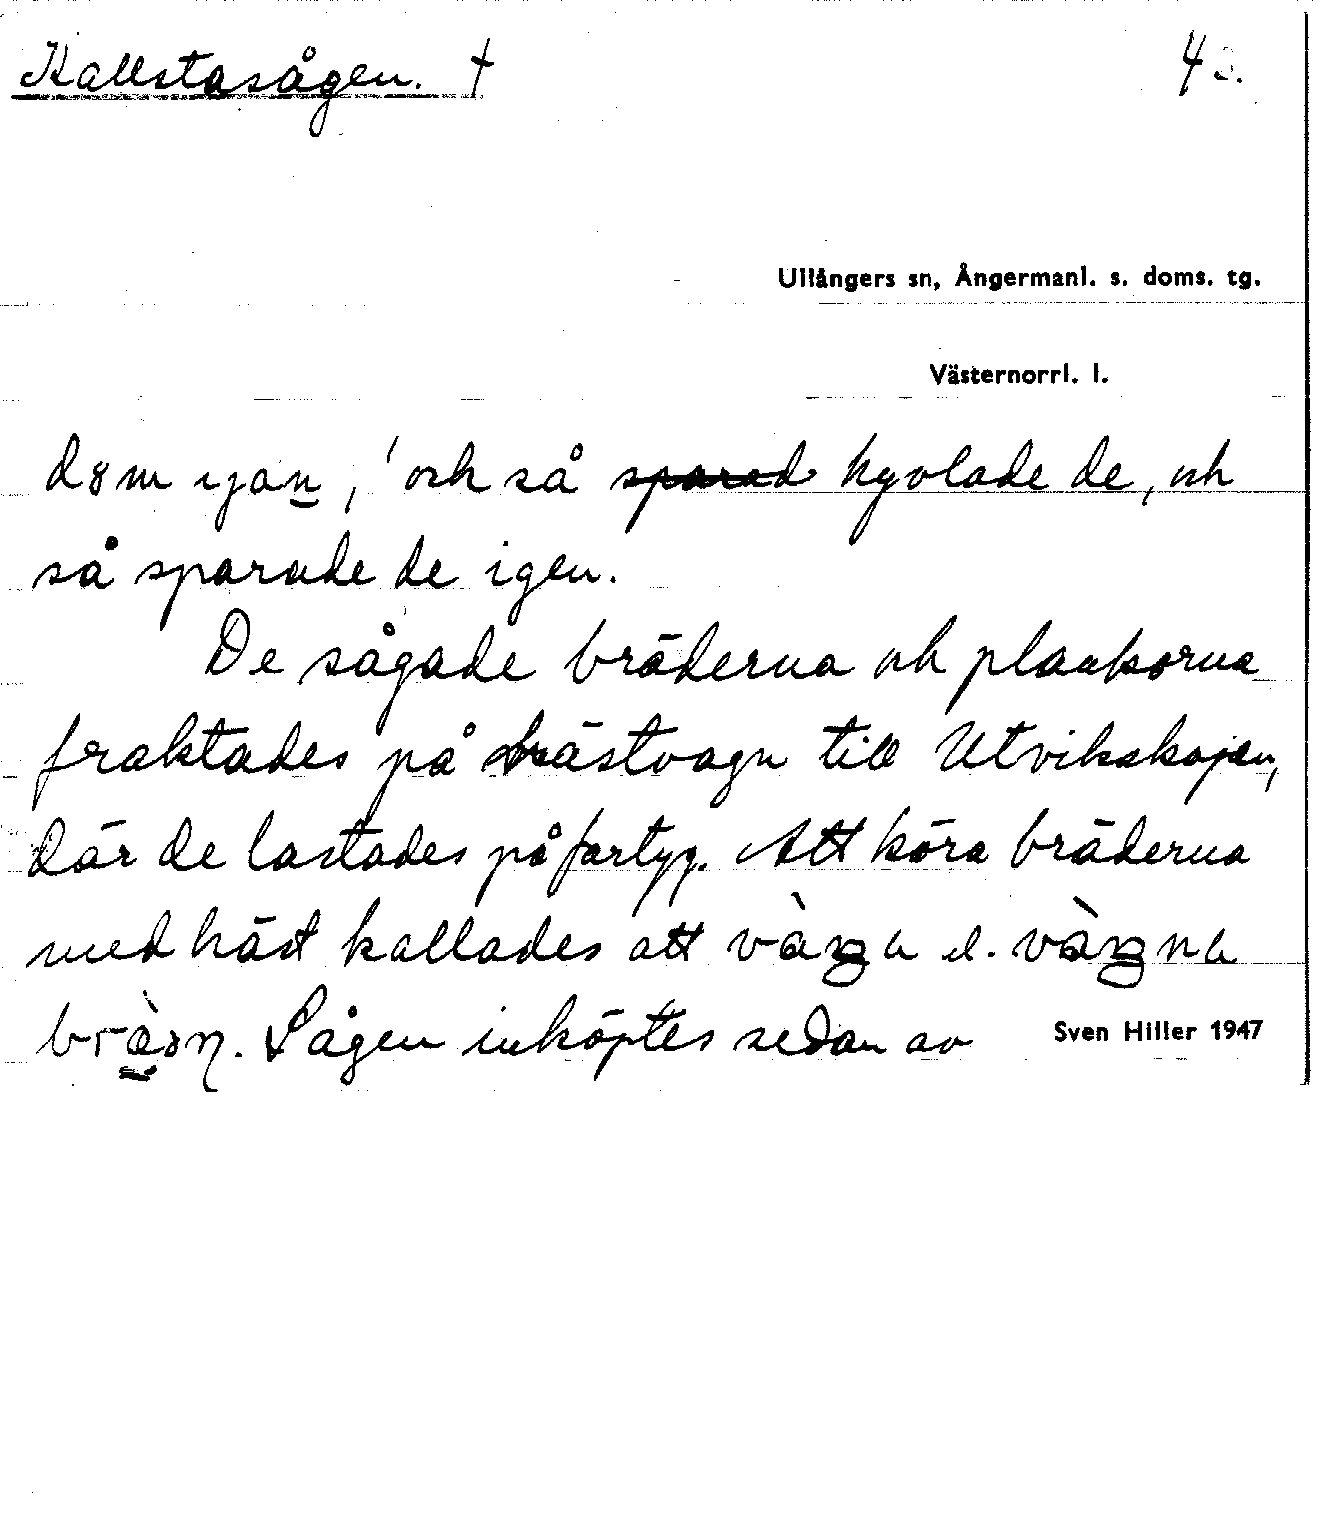 Kallstasågen. † 4
Ullångers sn, Ångermanl. s. doms. tg.
Västernorrl. l.
och så sparad hyvlade de, och
så sparade de igen.
De sågade bräderna och plankorna
fraktades på hästvagn till Utvikskajen,
där de lastades på fartyg. Att köra bräderna
med häst kallades att
Sågen inköptes sedan av
Sven Hiller 1947